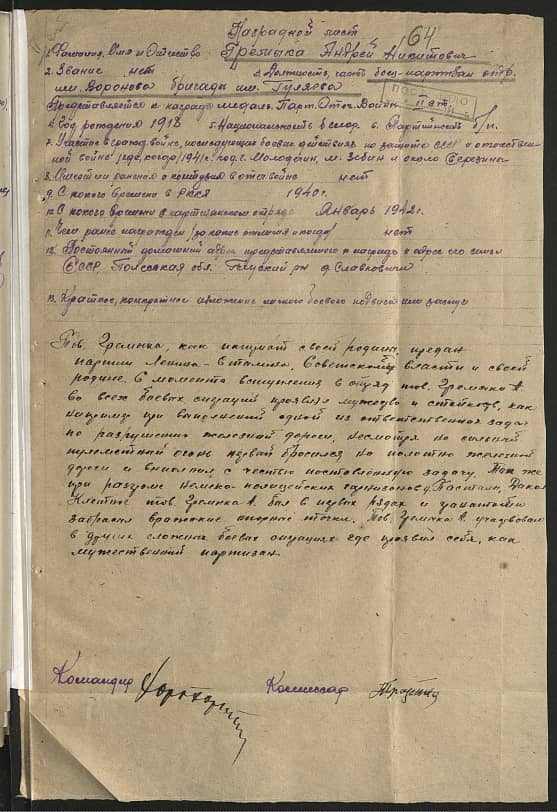 Наградной лист
64
1. Фамилия, Имя и Отчество Громыка Андрей Никитович
2. Звание нет 3. Должность, часть боец-партизан отр.
им. Воронова бригады им. Гуляева
Представляется к награде медаль "Парт. Отеч. Войны" II ст.
4. Год рождения 1918 5. Национальность белор. 6. Партийность б/п.
7. Участие в гражд. войне, последующих боевых действиях по защите СССР и отечествен-
ной войне /где, когда/ 1941г. под г. Молодечин, м. и около Березина
8. Имеет ли ранения и контузии в отеч. войне нет
9. С какого времени в РККА 1940г.
10. С какого времени в партизанском отряде Январь 1942г.
11. Чем ранее награжден /за какие отличия и когда/ нет
12. Постоянный домашний адрес представляемого к награде и адрес его семьи
БССР Полесская обл. Глуский р-н д. Славковичи
13. Краткое, конкретное изложение личного боевого подвига или заслуг
Тов. Громыка, как патриот своей родины, предан
партии Ленина-Сталина, Советской власти и своей
родине. С момента вступления в отряд тов. Громыка А.
во всех боевых операций проявлял мужество и стойкость, как
например при выполнении одной из ответственной задач
по разрушению железной дороги, несмотря на сильный
пулеметный огонь первый бросился на полотно железной
дороги и выполнил с честью поставленную задачу. Так же
при разгроме немецко-полицейских гарнизонов д.
тов. Громыка А. был в первых рядах и гранатами
забрасывал вражеские огневые точки. Тов. Громыка А. участвовал
в других сложных боевых операциях где проявил себя, как
мужественный партизан.
Командир Комиссар